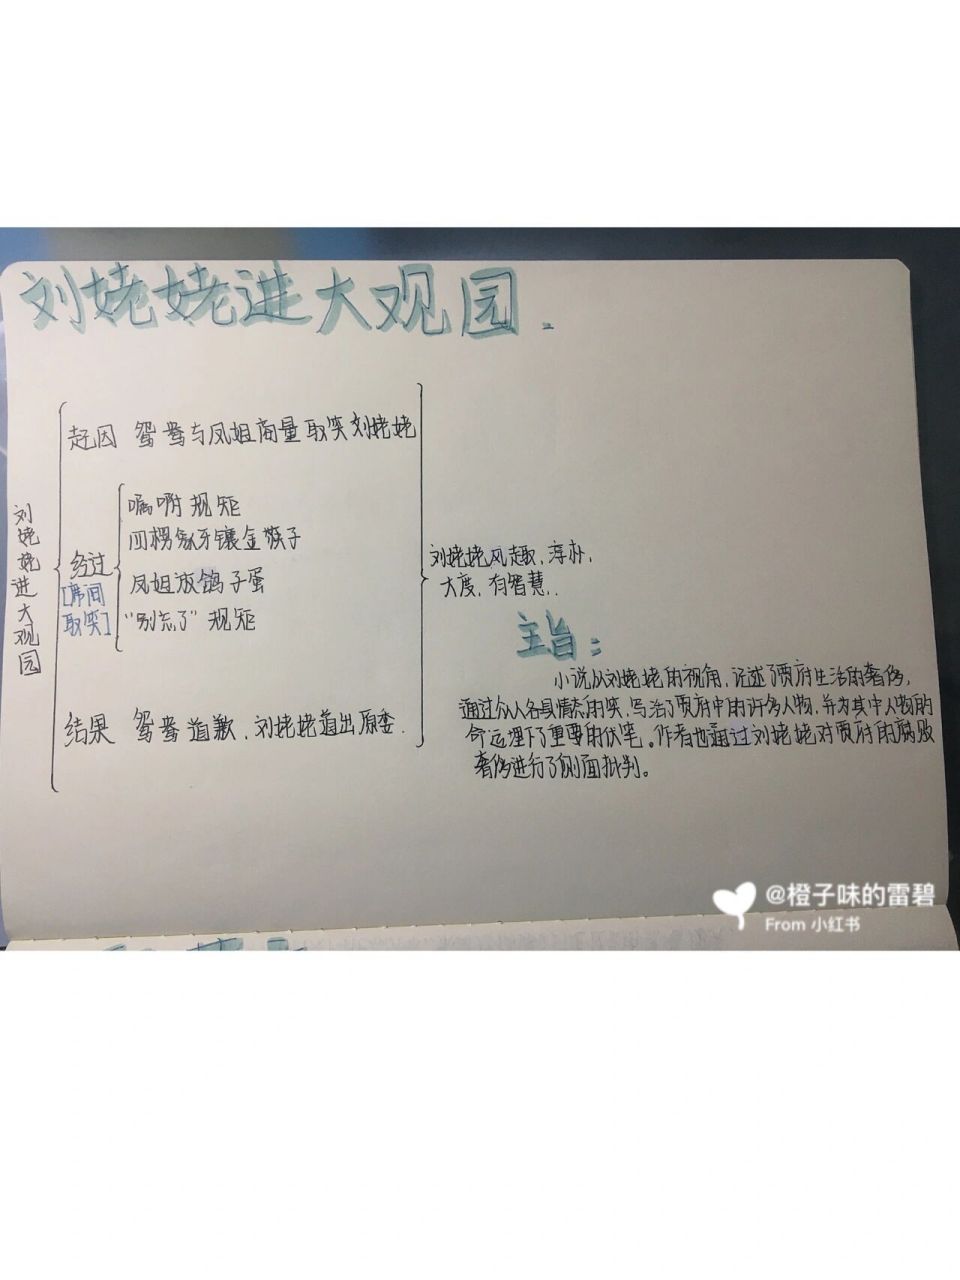 刘姥姥进大观园.
刘姥姥进大观园
起因 鸳鸯与凤姐商量取笑刘姥姥
经过
[席间
取笑]
嘱咐规矩
四楞象牙镶金筷子
凤姐放鸽子蛋
“别忘了”规矩
结果 鸳鸯道歉，刘姥姥道出原委.
刘姥姥风趣，淳朴，
大度，有智慧..
主旨：
小说从刘姥姥的视角，记述了贾府生活的奢侈，
通过众人各具情态的笑，写活了贾府中的许多人物，并为其中人物的
命运埋下了重要的伏笔。作者也通过刘姥姥对贾府的腐败
奢侈进行了侧面批判。
@橙子味的雷碧
From 小红书